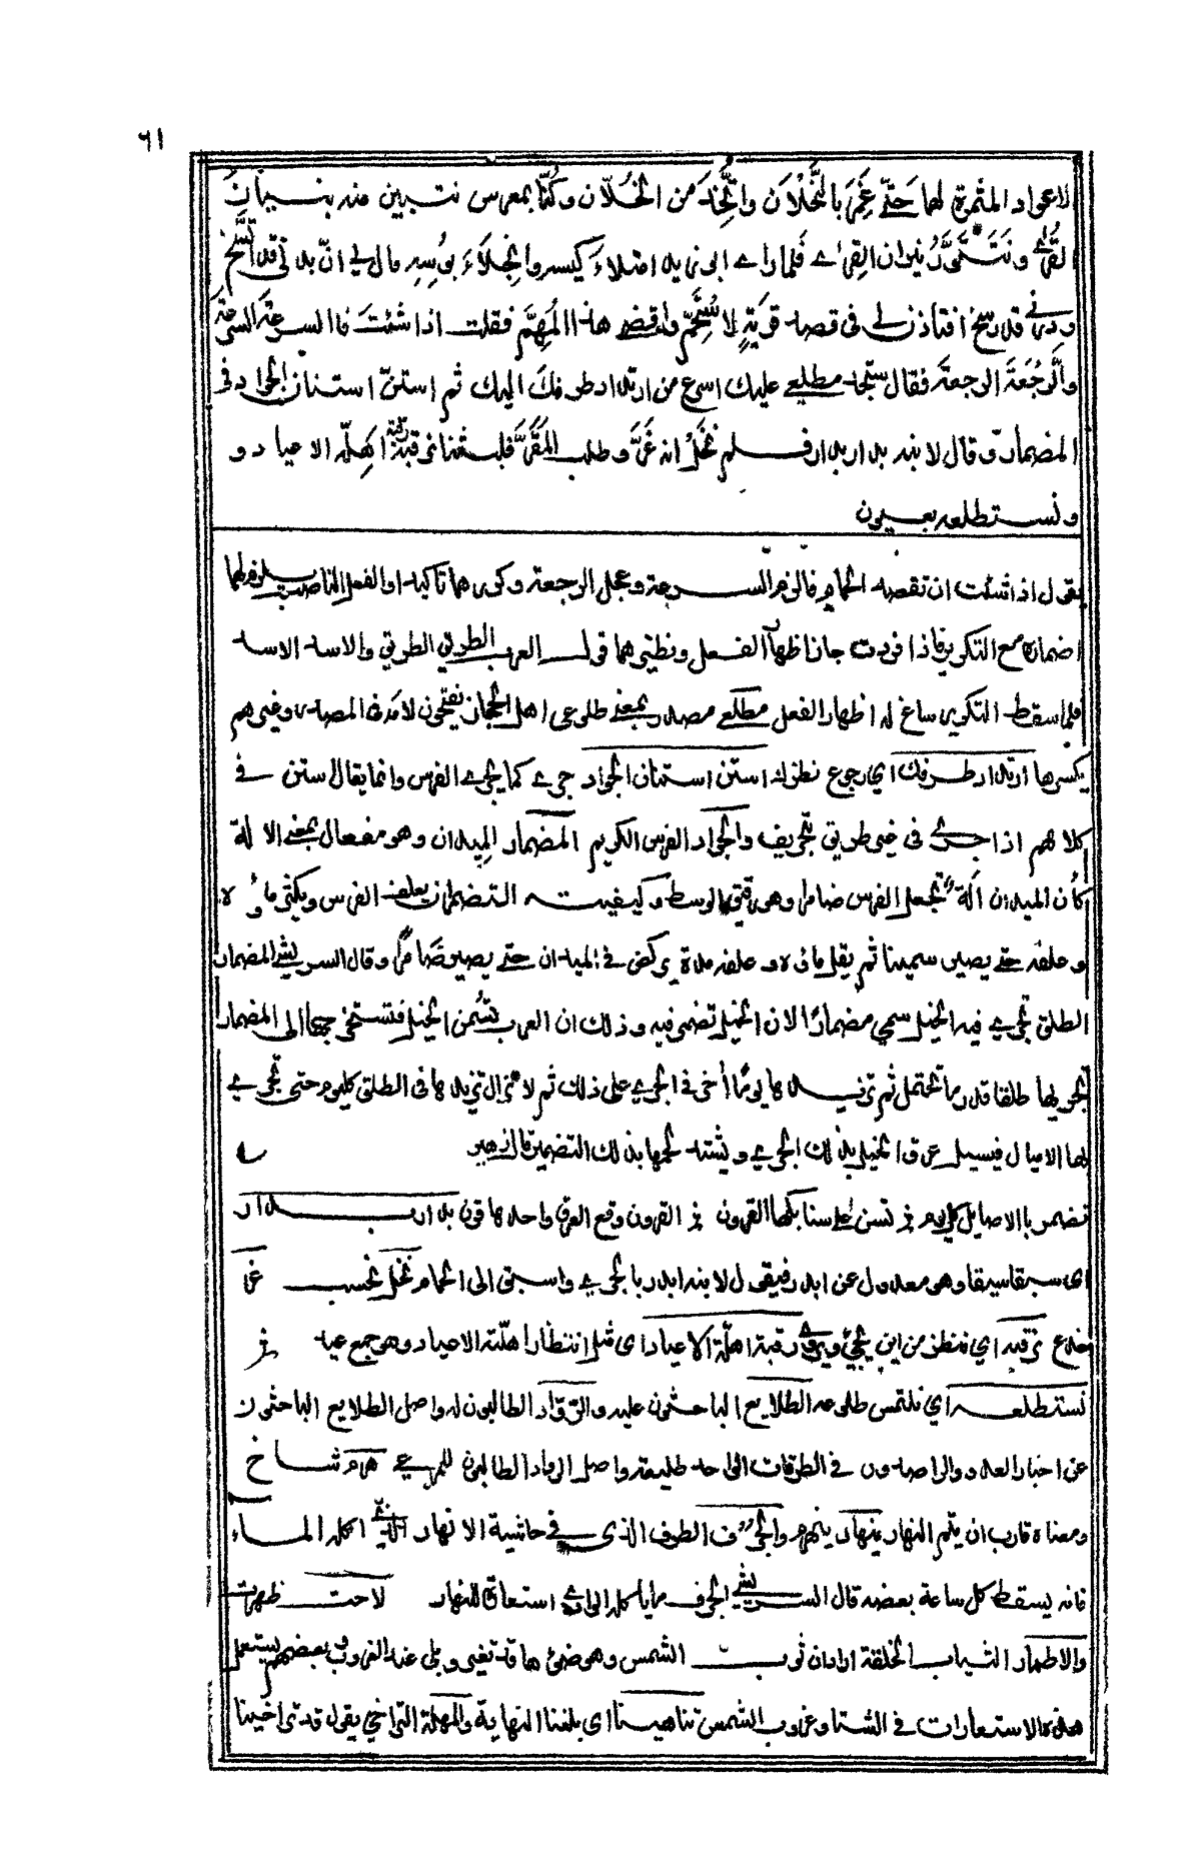 ٦١
الاعواد المثمرة لها حَتّى غَمَرَ بالنُّحْلَان واتُّخِذَ من الخُلّان وكُنّا بمعرس نتبين منه بنيان
القُرى ونَتَنَوَّرُ نيران القِرٰى فلما راى ابو زيد امتلاءَ كيسه وانجِلَاءَ بُوسِه قال لي ان بدني قد اتَّسَخَ
ودرني قد رسخ افتأذن لي في قصد قَرْيَةٍ لِاَسْتَحِمَّ واقضي هذا المُهِمَّ فقلت اذا شئتَ فالسرعة السرعة
والرَّجْعَةَ الرجعة فقال ستجد مطلعي عليك اسرع من ارتداد طرفك اليك ثم استنّ استنان الجواد في
المضمار وقال لابنه بدار بدار فلم نَخَلْ انه غَرَّ وطلب المَفَرَّ فلبثنا نرقبه رقبة اَهِلّة الاعياد و
ونستطلعه بعيون
يقول اذا شئت ان تقصد الحمام فالزم السرعة وعجل الرجعة وكررهما تاكيدا والفعل الناصب لهما
اضمار مع التكرير فاذا افردت جاز اظهار الفعل ونظيرهما قول العرب الطريق الطريق والاسد الاسد
فلما سقط التكرير ساغ له اظهار الفعل مطلعي مصدر بمعنى طلوعي اهل الحجاز يفتحون لام هذا المصدر وغيرهم
يكسرها ارتداد طرفك اي رجوع نظرك استن استنان الجواد جرى كما يجري الفرس وانما يقال ستن في
كلامهم اذا جرى في غير طريق تجريف والجواد الفرس الكريم المضمار الميدان وهو مفعال بمعنى الالة
كأن الميدان آلة تجعل الفرس ضامرا وهو رقيق الوسط وكيفيته التضمير ان يعلف الفرس ويكثر ماؤه
وعلفه حتى يصير سمينا ثم يقل ماؤه وعلفه مدة يركض في الميدان حتى يصير ضَامرًا وقال الشريشي المضمار
الطلق تجري فيه الخيل سمي مضمارًا لان الخيل تضمر فيه وذلك ان العرب تُسَمِّن الخيل فتستخرجها الى المضمار
تجريها طلقا قدر ما تحتمل ثم تزيدها يومًا أخر في الجري على ذلك ثم لا تزال تزيدها في الطلق كل يوم حتى تجري
لها الاميال فيسيل عرق الخيل بذلك الجري ويشتد لحمها بذلك التضمير قال زهير
تضمر بالاصايل كل يوم تسن على سنابكها القرون القرون وقع العرق واحدها قرن بدار بدار
اي سبقا سبقا وهو معدول عن ابدر فيقول لابنه ابدر بالجري واسبق الى الحمام نخل نحسب غر
خدع نرقبه اي ننظر من اين يجيء ورقبة اهلّة الاعياد اي مثل انتظار اهلّة الاعياد وهو جمع عيد
نستطلعه اي نلتمس طلوعه الطلايع الباحثون عليه والروّاد الطالبون له واصل الطلايع الباحثون
عن اخبار العدو والراصدون في الطرقات الواحد طليعة واصل الرواد الطالبون للمرعى هرم شاخ
ومعناه قارب ان يتم النهار ينهار ينهدم والجُرُف الطرف الذي في حاشية الانهار الذي اكله الماء
فانه يسقط كل ساعة بعضه قال الشريشي الجرف ما ياكله الوادي استعارة للنهار لاحت ظهرت
والاطمار الثياب الخلقة اراد ان ثوب الشمس وهو ضوئها قد تغير وبلي عند الغروب وبعضهم يستعمل
هذه الاستعارات في الشتا وغروب الشمس تناهينا اي بلغنا النهاية والمهلة التراخي يقول قد تراخينا